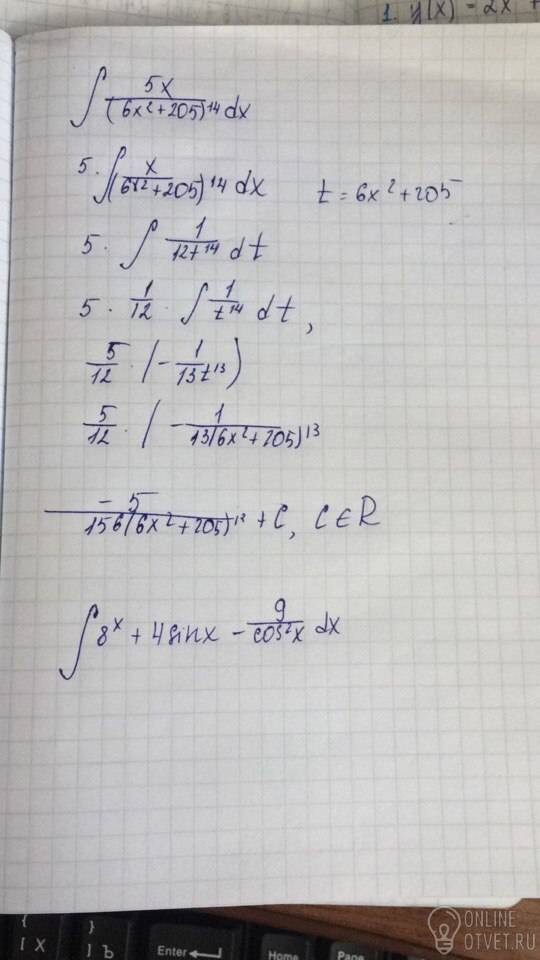 1. y(x) = 2x +
∫ 5x/(6x²+205)¹⁴ dx
5 · ∫ x/(6x²+205)¹⁴ dx t = 6x²+205
5 · ∫ 1/12t¹⁴ dt
5 · 1/12 · ∫ 1/t¹⁴ dt,
5/12 · (- 1/13t¹³)
5/12 · (- 1/13(6x²+205)¹³
-5/156(6x²+205)¹³ + C, C ∈ R
∫ 8ˣ + 4 sinx - 9/cos²x dx
{
[ Х
}
] Ъ
Enter
Home
Page
ONLINE
OTVET.RU